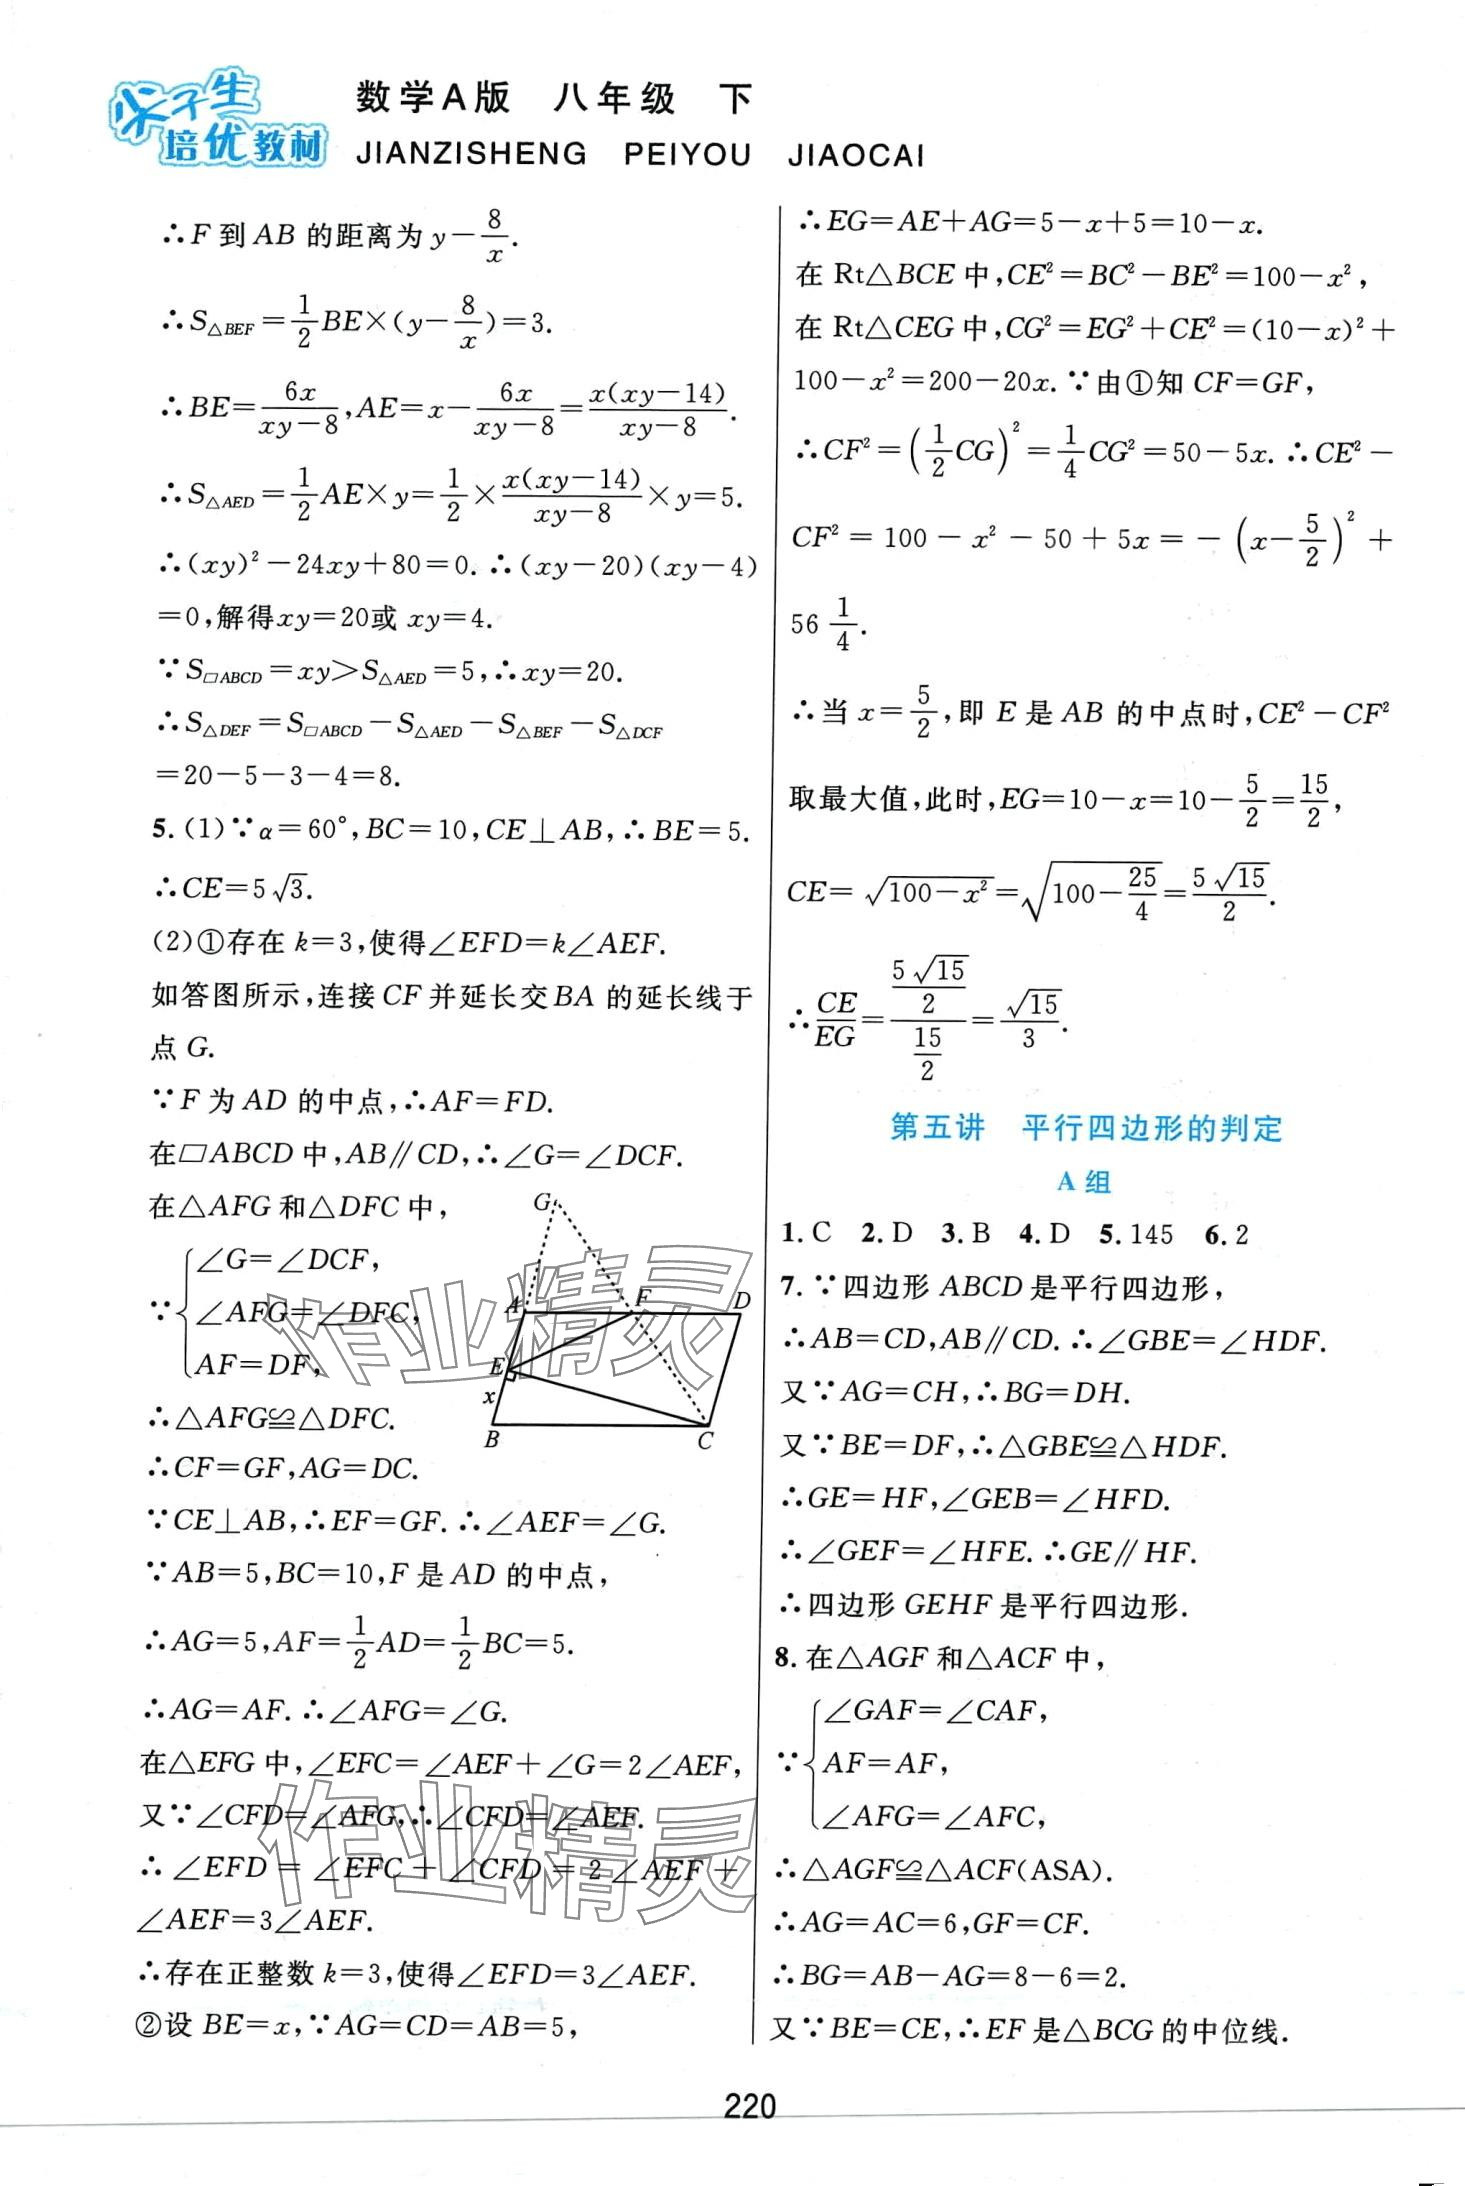 尖子生
培优教材
数学A版 八年级 下
JIANZISHENG PEIYOU JIAOCAI
∴F 到 AB 的距离为 y－8/x.
∴S△BEF＝1/2 BE×(y－8/x)＝3.
∴BE＝6x/(xy－8),AE＝x－6x/(xy－8)＝x(xy－14)/(xy－8).
∴S△AED＝1/2 AE×y＝1/2×x(xy－14)/(xy－8)×y＝5.
∴(xy)²－24xy＋80＝0.∴(xy－20)(xy－4)
＝0,解得xy＝20或 xy＝4.
∵S▱ABCD＝xy＞S△AED＝5,∴xy＝20.
∴S△DEF＝S▱ABCD－S△AED－S△BEF－S△DCF
＝20－5－3－4＝8.
5.(1)∵α＝60°,BC＝10,CE⊥AB,∴BE＝5.
∴CE＝5√3.
(2)①存在 k＝3,使得∠EFD＝k∠AEF.
如答图所示,连接 CF 并延长交BA 的延长线于
点 G.
∵F 为 AD 的中点,∴AF＝FD.
在▱ABCD 中,AB∥CD,∴∠G＝∠DCF.
在△AFG 和△DFC 中,
∠G＝∠DCF,
∵{∠AFG＝∠DFC,
AF＝DF,
G
A F D
E
x
B C
∴△AFG≌△DFC.
∴CF＝GF,AG＝DC.
∵CE⊥AB,∴EF＝GF.∴∠AEF＝∠G.
∵AB＝5,BC＝10,F 是 AD 的中点,
∴AG＝5,AF＝1/2 AD＝1/2 BC＝5.
∴AG＝AF.∴∠AFG＝∠G.
在△EFG 中,∠EFC＝∠AEF＋∠G＝2∠AEF,
又∵∠CFD＝∠AFG,∴∠CFD＝∠AEF.
∴∠EFD＝∠EFC＋∠CFD＝2∠AEF＋
∠AEF＝3∠AEF.
∴存在正整数 k＝3,使得∠EFD＝3∠AEF.
②设 BE＝x,∵AG＝CD＝AB＝5,
∴EG＝AE＋AG＝5－x＋5＝10－x.
在 Rt△BCE 中,CE²＝BC²－BE²＝100－x²,
在 Rt△CEG 中,CG²＝EG²＋CE²＝(10－x)²＋
100－x²＝200－20x.∵由①知 CF＝GF,
∴CF²＝(1/2 CG)²＝1/4 CG²＝50－5x.∴CE²－
CF²＝100－x²－50＋5x＝－(x－5/2)²＋
56 1/4.
∴当 x＝5/2,即 E 是 AB 的中点时,CE²－CF²
取最大值,此时,EG＝10－x＝10－5/2＝15/2,
CE＝√(100－x²)＝√(100－25/4)＝5√15/2.
∴CE/EG＝(5√15/2)/(15/2)＝√15/3.
第五讲 平行四边形的判定
A 组
1.C 2.D 3.B 4.D 5.145 6.2
7.∵四边形 ABCD 是平行四边形,
∴AB＝CD,AB∥CD.∴∠GBE＝∠HDF.
又∵AG＝CH,∴BG＝DH.
又∵BE＝DF,∴△GBE≌△HDF.
∴GE＝HF,∠GEB＝∠HFD.
∴∠GEF＝∠HFE.∴GE∥HF.
∴四边形 GEHF 是平行四边形.
8.在△AGF 和△ACF 中,
∠GAF＝∠CAF,
∵{AF＝AF,
∠AFG＝∠AFC,
∴△AGF≌△ACF(ASA).
∴AG＝AC＝6,GF＝CF.
∴BG＝AB－AG＝8－6＝2.
又∵BE＝CE,∴EF 是△BCG 的中位线.
作业精灵
作业精灵
220